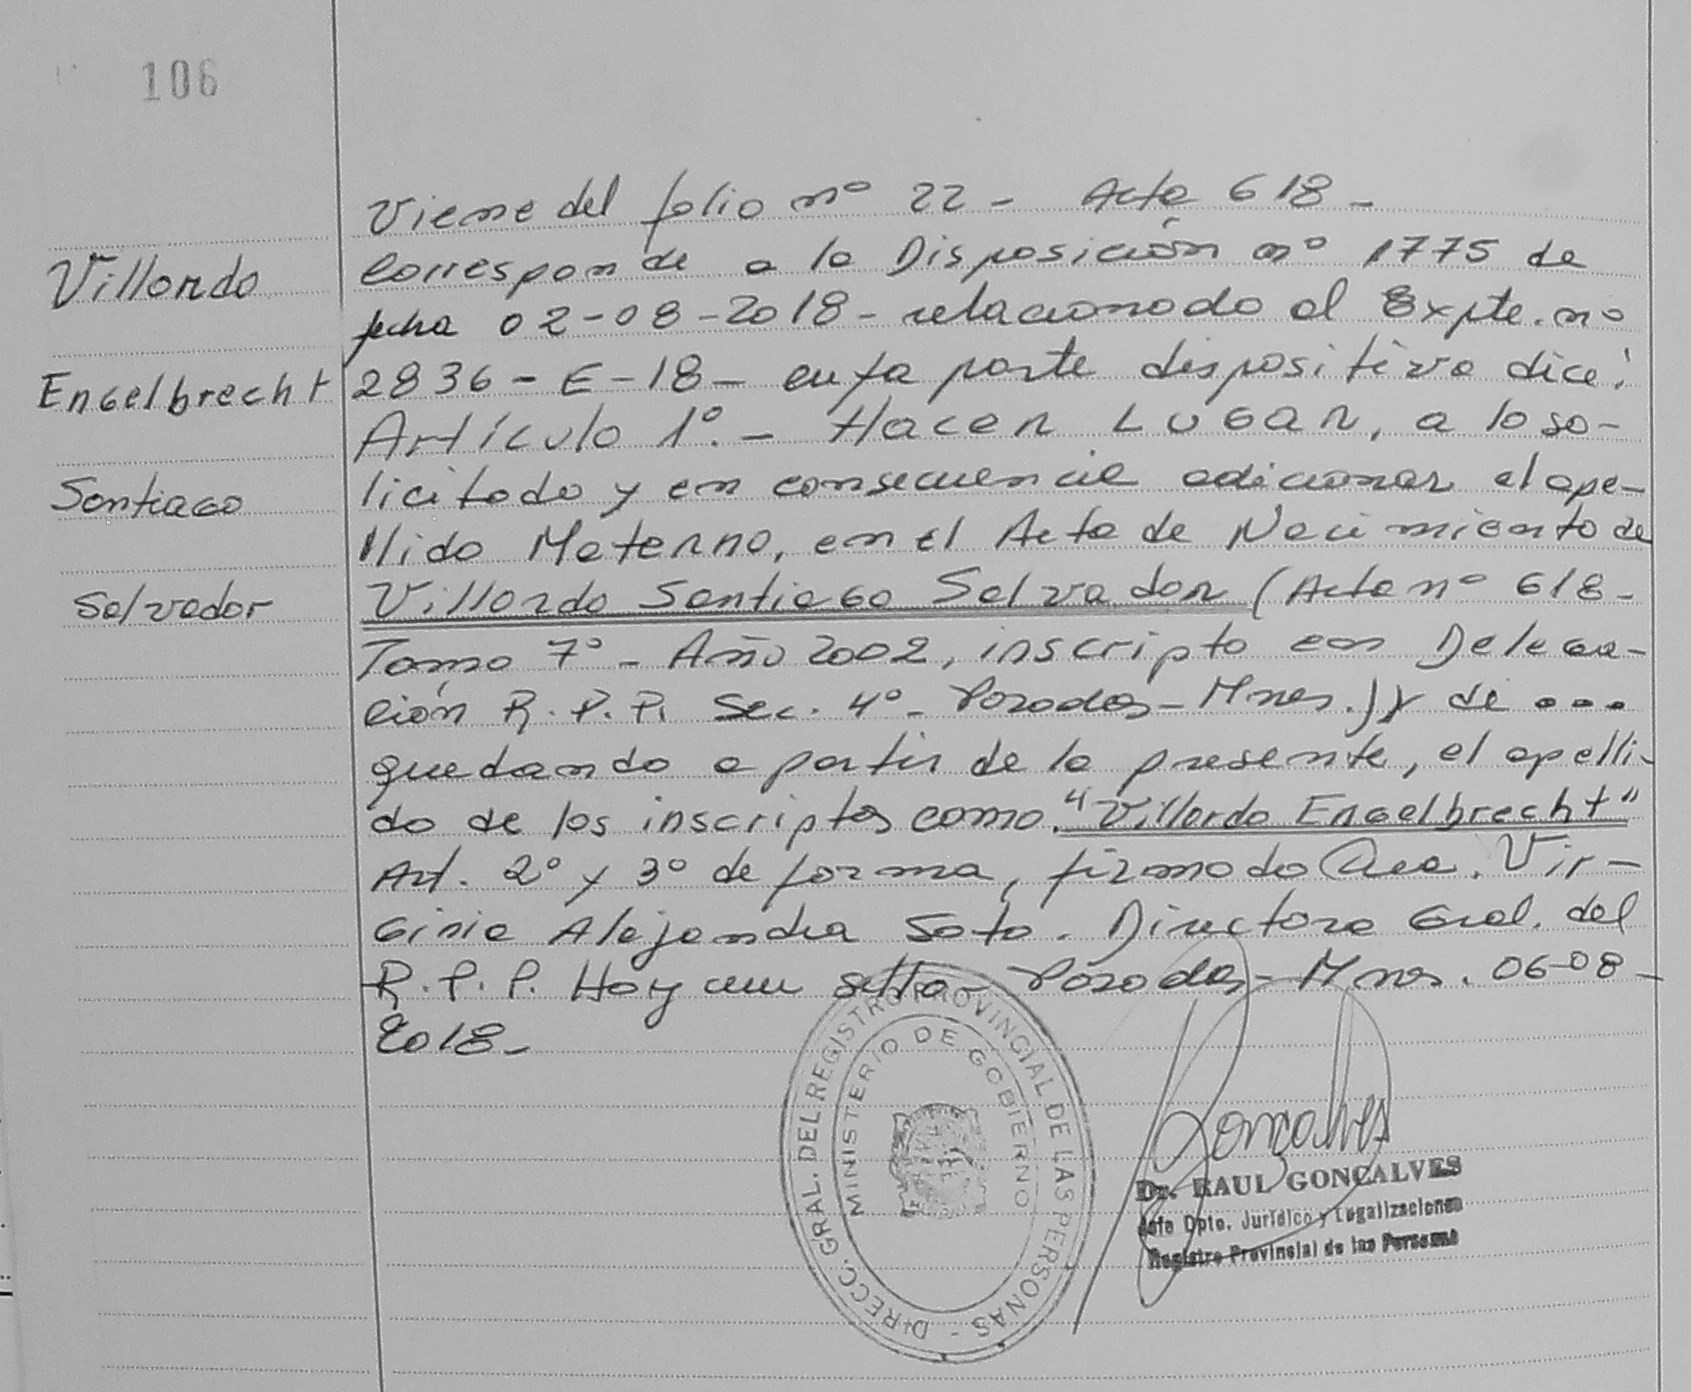 106
Villordo
Engelbrecht
Santiago
Salvador
Viene del folio nº 22 - Acta 618 -
Corresponde a la Disposición nº 1775 de
fecha 02-08-2018 - relacionado al Expte. nº
2836 - E - 18 - cuya parte dispositiva dice:
Artículo 1º. - Hacer Lugar, a lo so-
licitado y en consecuencia adicionar el ape-
llido Materno, en el Acta de Nacimiento de
Villordo Santiago Salvador (Acta nº 618 -
Tomo 7º - Año 2002, inscripto en Delega-
ción R.P.P. Sec. 4º - Posadas - Mnes.) y de ...
quedando a partir de la presente, el apelli-
do de los inscriptos como. "Villordo Engelbrecht"
Art. 2º y 3º de forma, firmado Vir-
ginia Alejandra Soto. Directora Gral. del
R.P.P. Hay un sello - Posadas - Mnes. 06-08-
2018 -
DIRECC. GRAL. DEL REGISTRO PROVINCIAL DE LAS PERSONAS -
MINISTERIO DE GOBIERNO
Goncalves
Dr. RAUL GONCALVES
Jefe Dpto. Jurídico y Legalizaciones
Registro Provincial de las Personas